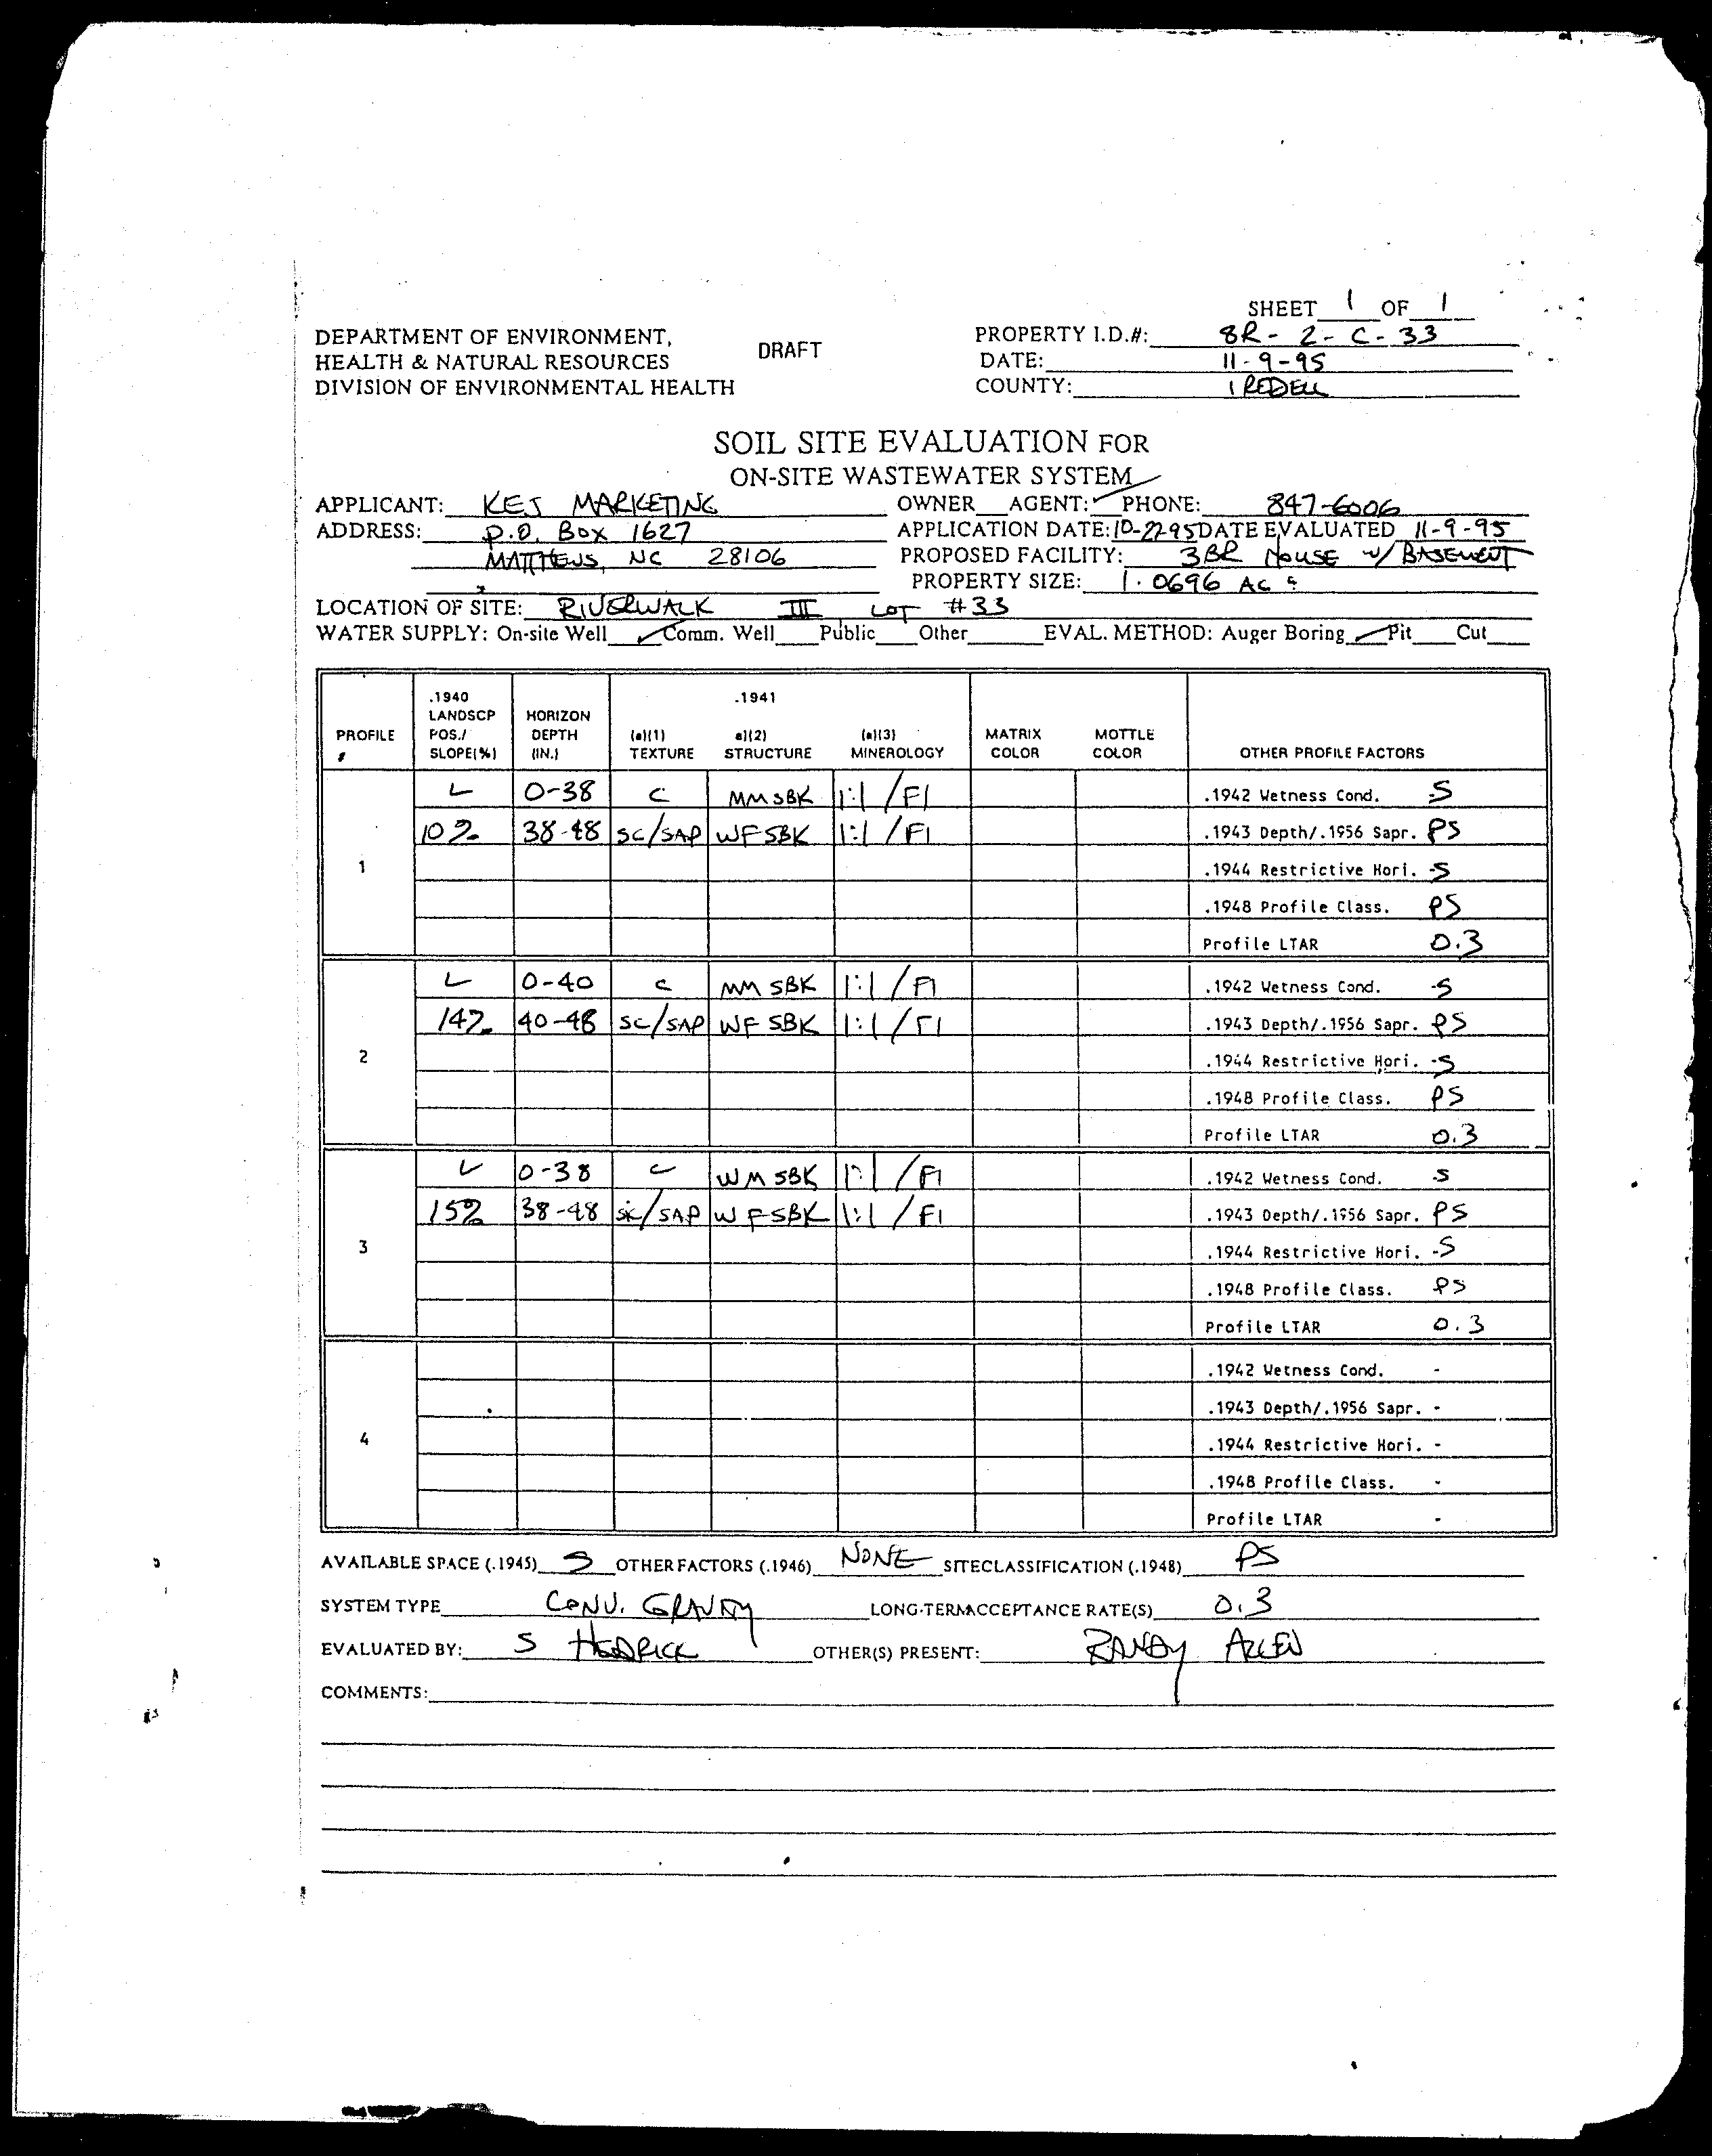 SHEET 1 OF 1
DEPARTMENT OF ENVIRONMENT, DRAFT PROPERTY I.D.#: 8R-2-C-33
HEALTH & NATURAL RESOURCES DATE: 11-9-95
DIVISION OF ENVIRONMENTAL HEALTH COUNTY: IREDELL
SOIL SITE EVALUATION FOR
ON-SITE WASTEWATER SYSTEM
APPLICANT: KEJ MARKETING OWNER AGENT: ✓ PHONE: 847-6006
ADDRESS: P.O. BOX 1627 APPLICATION DATE: DATE EVALUATED 11-9-95
MATTHEWS, NC 28106 PROPOSED FACILITY: 3BR HOUSE W/ BASEMENT
PROPERTY SIZE: 1.0696 AC
LOCATION OF SITE: RIVERWALK III LOT #33
WATER SUPPLY: On-site Well ✓ Comm. Well Public Other EVAL. METHOD: Auger Boring ✓ Pit Cut
PROFILE # .1940 LANDSCP POS./ SLOPE(%) HORIZON DEPTH (IN.) .1941 (a)(1) TEXTURE a)(2) STRUCTURE (a)(3) MINEROLOGY MATRIX COLOR MOTTLE COLOR OTHER PROFILE FACTORS
1
L 0-38 C MMSBK 1:1/FI .1942 Wetness Cond. S
10% 38-48 SC/SAP WFSBK 1:1/FI .1943 Depth/.1956 Sapr. PS
.1944 Restrictive Hori. -S
.1948 Profile Class. PS
Profile LTAR 0.3
2
L 0-40 C MM SBK 1:1/FI .1942 Wetness Cond. -S
14% 40-48 SC/SAP WF SBK 1:1/FI .1943 Depth/.1956 Sapr. PS
.1944 Restrictive Hori. -S
.1948 Profile Class. PS
Profile LTAR 0.3
3
L 0-38 C WM SBK 1:1/FI .1942 Wetness Cond. -S
15% 38-48 SC/SAP WFSBK 1:1/FI .1943 Depth/.1956 Sapr. PS
.1944 Restrictive Hori. -S
.1948 Profile Class. PS
Profile LTAR 0.3
4
.1942 Wetness Cond. -
.1943 Depth/.1956 Sapr. -
.1944 Restrictive Hori. -
.1948 Profile Class. -
Profile LTAR -
AVAILABLE SPACE (.1945) S OTHER FACTORS (.1946) NONE SITE CLASSIFICATION (.1948) PS
SYSTEM TYPE CONV. GRAVITY LONG-TERM ACCEPTANCE RATE(S) 0.3
EVALUATED BY: S HEDRICK OTHER(S) PRESENT: RANDY ALLEN
COMMENTS: